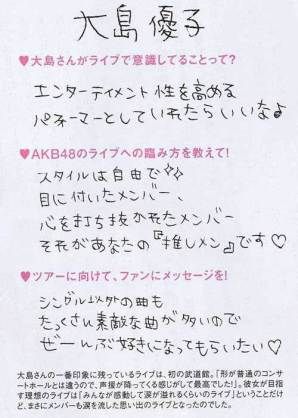 大島優子
♥大島さんがライブで意識してることって?
エンターティメント性を高める
パホーマーとしていれたらいいなょ
♥AKB48のライブへの臨み方を教えて!
スタイルは自由で✧✧
目に付いたメンバー、
心を打ち抜かれたメンバー
それがあなたの『推しメン』です♡
♥ツアーに向けて、ファンにメッセージを!
シングル以外の曲も
たっくさん素敵な曲が多いので
ぜーんぶ好きになってもらいたい♡
大島さんの一番印象に残っているライブは、初の武道館。「形が普通のコンサ
ートホールとは違うので、声援が降ってくる感じがして最高でした!」。彼女が目
指す理想のライブは「みんなが感動して涙が溢れるくらいのライブ」ということだけ
ど、まさにメンバーも涙を流した思い出のライブとなったのでした。